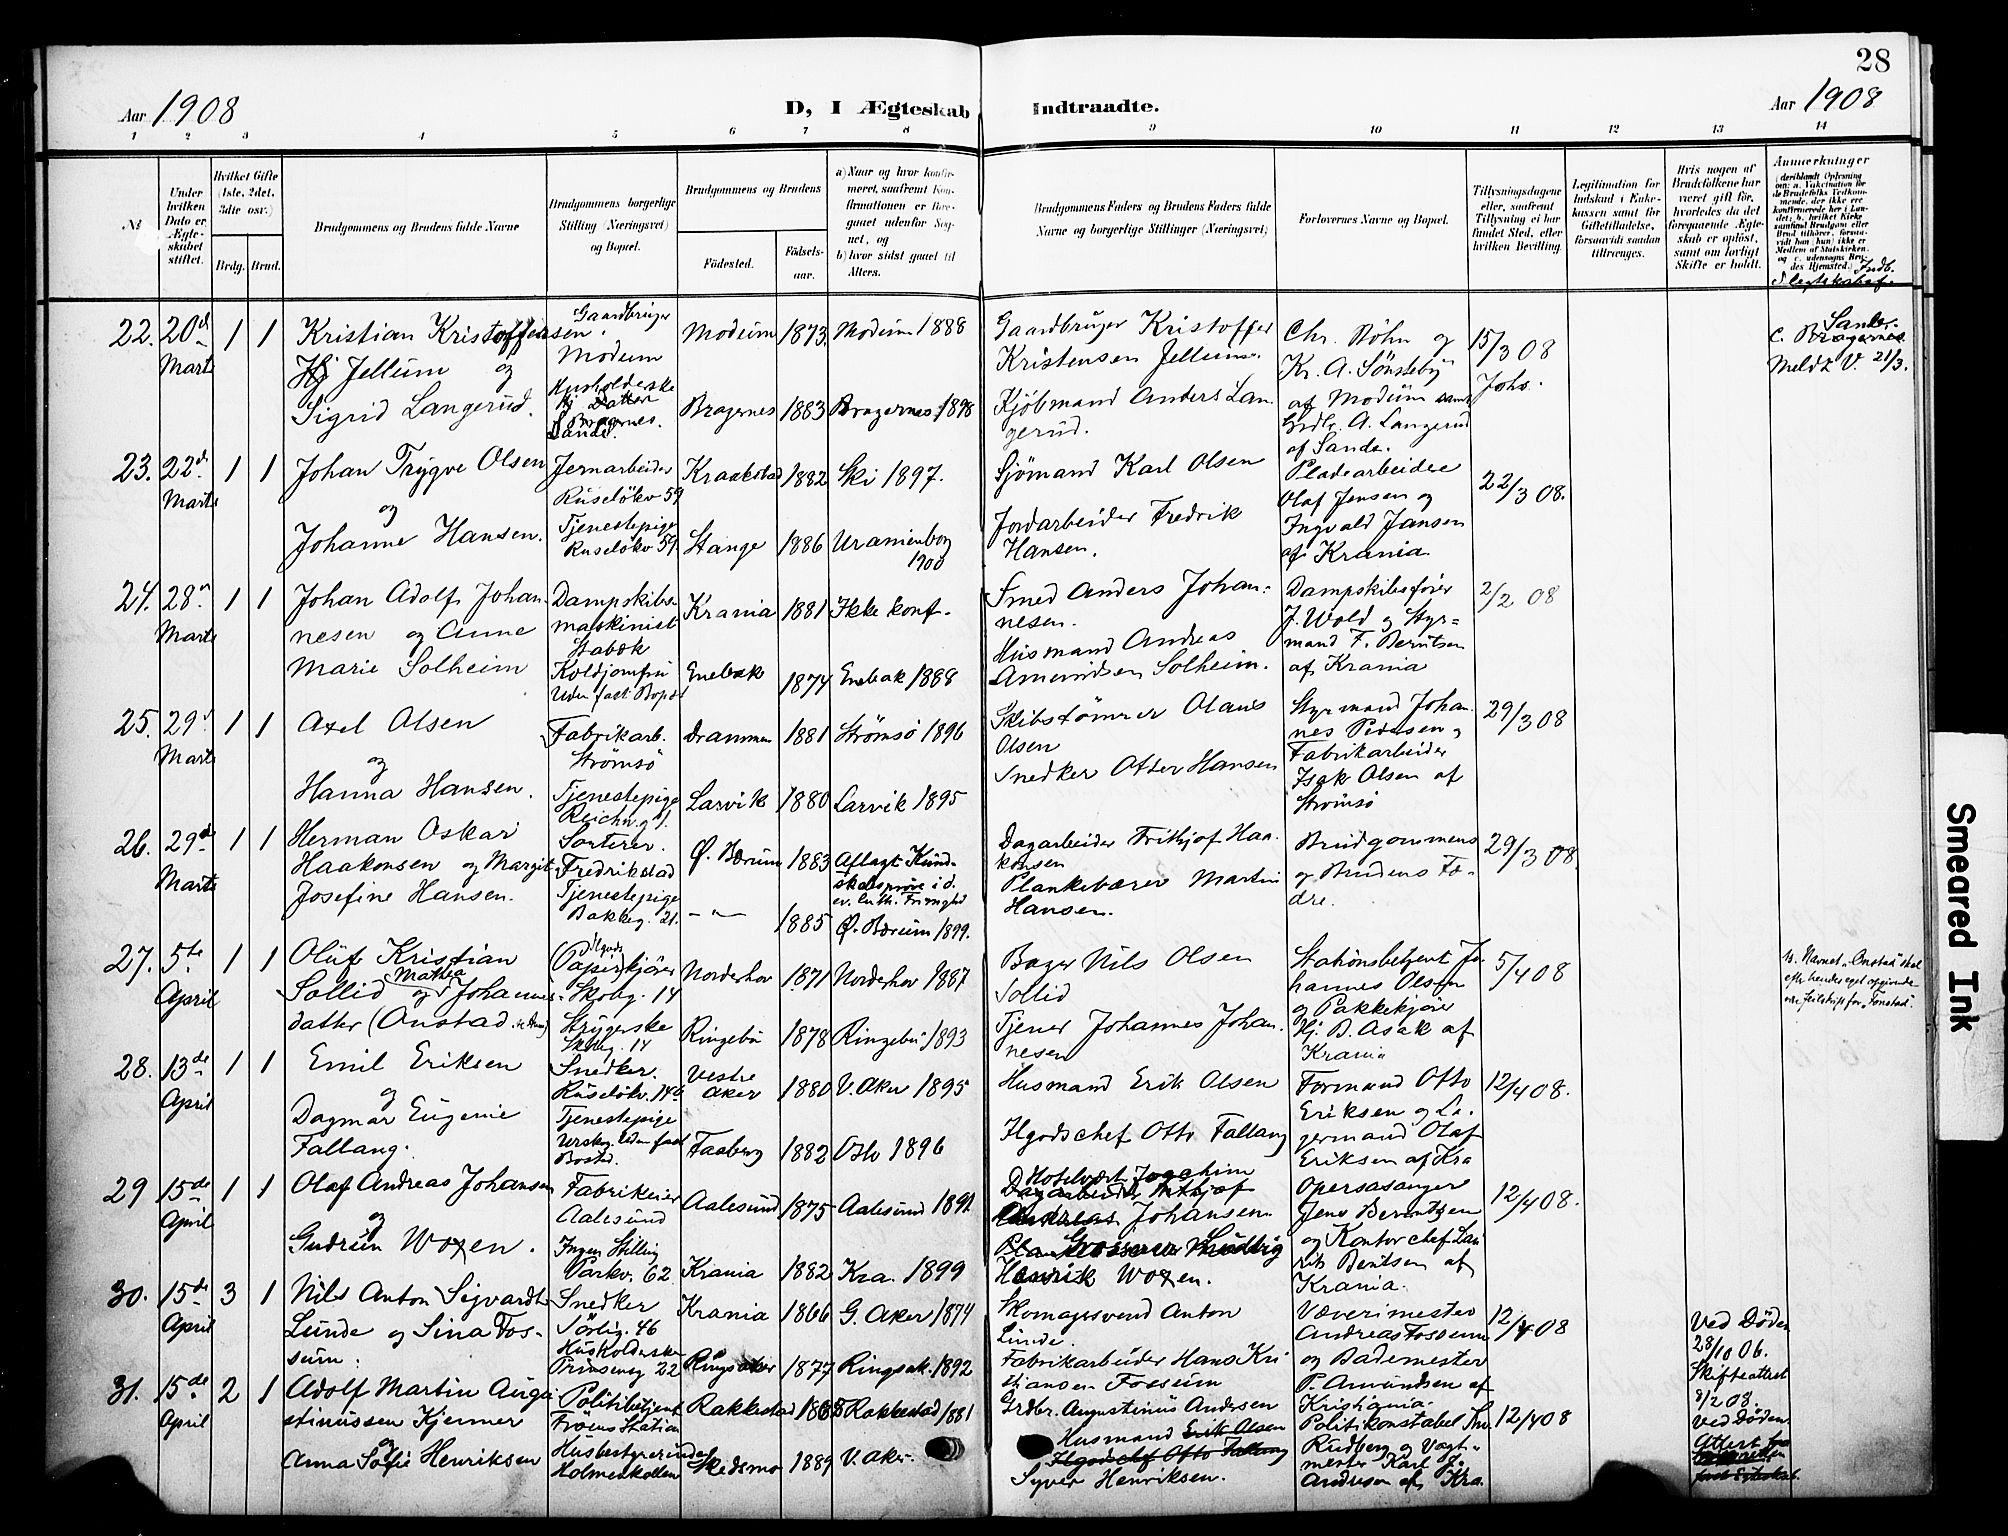 28
Aar 1908
D, I Ægteskab Indtraadte.
Aar 1908
1 2 3 4 5 6 7 8 9 10 11 12 13 14
№
Under hvilken Dato er Ægteskabet stiftet.
Hvilket Gifte (1ste, 2det, 3dte osv.)
Brdg. Brud.
Brudgommens og Brudens fulde Navne
Brudgommens borgerlige Stilling (Næringsvei) og Bopæl.
Brudgommens og Brudens
Fødested.
Fødselsaar.
a) Naar og hvor konfirmeret, saafremt Konfirmationen er foregaaet udenfor Sognet, og
b) hvor sidst gaaet til Alters.
Brudgommens Faders og Brudens Faders fulde Navne og borgerlige Stillinger (Næringsvei)
Forlovernes Navne og Bopæl.
Tillysningsdagene eller, saafremt Tillysning ei har fundet Sted, efter hvilken Bevilling.
Legitimation for Indskud i Enkekassen samt for Giftetilladelse, forsaavidt saadan tiltrænges.
Hvis nogen af Brudefolkene har været gift før, hvorledes da det foregaaende Ægteskab er opløst, samt om lovligt Skifte er holdt.
Anmerkninger
(deriblandt Oplysning om: a. Vakcination for de Brudefolks Vedkommende, der ikke ere konfirmerede her i Landet; b. hvilket Kirkesamfund Brudgom eller Brud tilhører, forsaavidt han (hun) ikke er Medlem af Statskirken, og c. udensogns Brudes Hjemsted.) Indb. Slegtskabsf.
22. 20de Marts 1 1
Kristian Kristoffersen
Hj Jellum og
Sigrid Langerud.
Gaardbruger
Modum
Husholderske
Hj Datter
Bragernes.
Sande.
Modum 1873 Modum 1888
Bragernes 1883 Bragernes 1898
Gaardbruger Kristoffer
Kristensen Jellum.
Kjøbmand Anders Langerud.
Chr. Bøhn og
Kr. A. Sønsteby
af Modum samt
Grdbr. A. Langerud
af Sande.
15/3 08
Johs.
Sande.
C. Bragernes
Meldt V. 21/3.
23. 22de Marts 1 1
Johan Trygve Olsen
og
Johanne Hansen.
Jernarbeider
Ruseløkv 59
Tjenestepige
Ruseløkv 59.
Kraakstad 1882 Ski 1897.
Stange 1886 Uranienborg
1900
Sjømand Karl Olsen
Jordarbeider Fredrik
Hansen.
Pladearbeider
Olaf Jensen og
Ingvald Jansen
af Krania
22/3 08.
24. 28de Marts 1 1
Johan Adolf Johan-
nesen og Anne
Marie Solheim
Dampskibs-
maskinist
Stabæk
Koldjomfru
Uden fast Bopæl
Krania 1881 Ikke konf.
Enebak 1874 Enebak 1888
Smed Anders Johan-
nesen.
Husmand Andreas
Amundsen Solheim.
Dampskibsfører
J. Wold og Styr-
mand F. Berntsen
af Krania
2/2 08
25. 29de Marts 1 1
Axel Olsen
og
Hanna Hansen.
Fabrikarb.
Strømsø
Tjenestepige
Drammen 1881 Strømsø 1896
Larvik 1880 Larvik 1895
Skibstømrer Olaus
Olsen
Snedker Otter Hansen
Styrmand Johan-
nes Pedersen og
Fabrikarbeider
Isak Olsen af
Strømsø
29/3 08
26. 29de Marts 1 1
Herman Oskar
Haakonsen og Margit
Josefine Hansen.
Sorterer.
Fredrikstad
Tjenestepige
Bakkeg. 21.
Ø. Bærum 1883 Aflagt Kund-
skabsprøve i d.
ev. luth. Frimghed
— " — 1885 Ø. Bærum 1899.
Dagarbeider Frithjof Haa-
konsen
Plankebærer Martin
Hansen.
Brudgommens
og Brudens Fæ-
dre.
29/3 08.
27. 5te April 1 1
Oluf Kristian
Sollid og Mathea Johannes-
datter (Onstad)
Ilgods
Papirkjører
Skobg. 14
Strygerske
Skobg. 14
Norderhov 1871 Norderhov 1887
Ringebu 1878 Ringebu 1893
Bager Nils Olsen
Sollid
Tjener Johannes Johan-
nesen
Stationsbetjent Jo-
hannes Olsen
og Pakkekjører
Hj. B. Asak af
Krania
5/4 08
b. Navnet "Onstad" skal
efter hendes eget opgivende
være feilskrift for "Tonstad".
28. 13de April 1 1
Emil Eriksen
og
Dagmar Eugenie
Fallang.
Snedker.
Ruseløkv. 14b
Tjenestepige
Uden fast
Bosted.
Vestre
Aker 1880 V. Aker 1895
Faaberg 1882 Oslo 1896
Husmand Erik Olsen
Ilgodschef Otto Fallang
Formand Otto
Eriksen og La-
germand Olaf
Eriksen af Kra
12/4 08.
29 15de April 1 1
Olaf Andreas Johansen
og
Gudrun Woxen.
Fabrikeier
Aalesund
Ingen Stilling
Parkv. 62
Aalesund 1875 Aalesund 1891
Krania 1882 Kra. 1899
Hotelvært Joachim
Dagarbeider Frithjof
Andreas Johansen.
Grosserer Ludvig
Henrik Woxen.
Operasanger
Jens Berntsen
og Kontorchef Lau-
rits Berntsen af
Krania.
12/4 08.
30. 15de April 3 1
Nils Anton Sigvardt
Lunde og Sina Fos-
sum.
Snedker
Sørlig. 46
Husholderske
Prinsensg 22
Krania 1866 G. Aker 1874
Ringsaker 1877 Ringsak. 1892
Skomagersvend Anton
Lunde.
Fabrikarbeider Hans Kri-
stiansen Fossum
Væverimester
Andreas Fossum
og Bademester
P. Amundsen af
Kristiania.
12/4 08
Ved Døden
28/10 06.
Skifteattest
8/2 08.
31. 15de April 2 1
Adolf Martin Augu-
stinussen Kjerner
og
Anna Sofie Henriksen
Politibetjent
Frøens Station
Husbestyrerinde
Holmenkollen
Rakkestad 1865 Rakkestad 1881
Skedsmo 1889 V. Aker
Grdbr. Augustinus Andersen
Husmand Erik Olsen
Ilgodschef Otto Fallang
Syver Henriksen.
Politikonstabel Thv.
Rudberg og Vagt-
mester Karl J.
Andersen af Kra.
12/4 08
Ved Døden
Attest
Smeared Ink